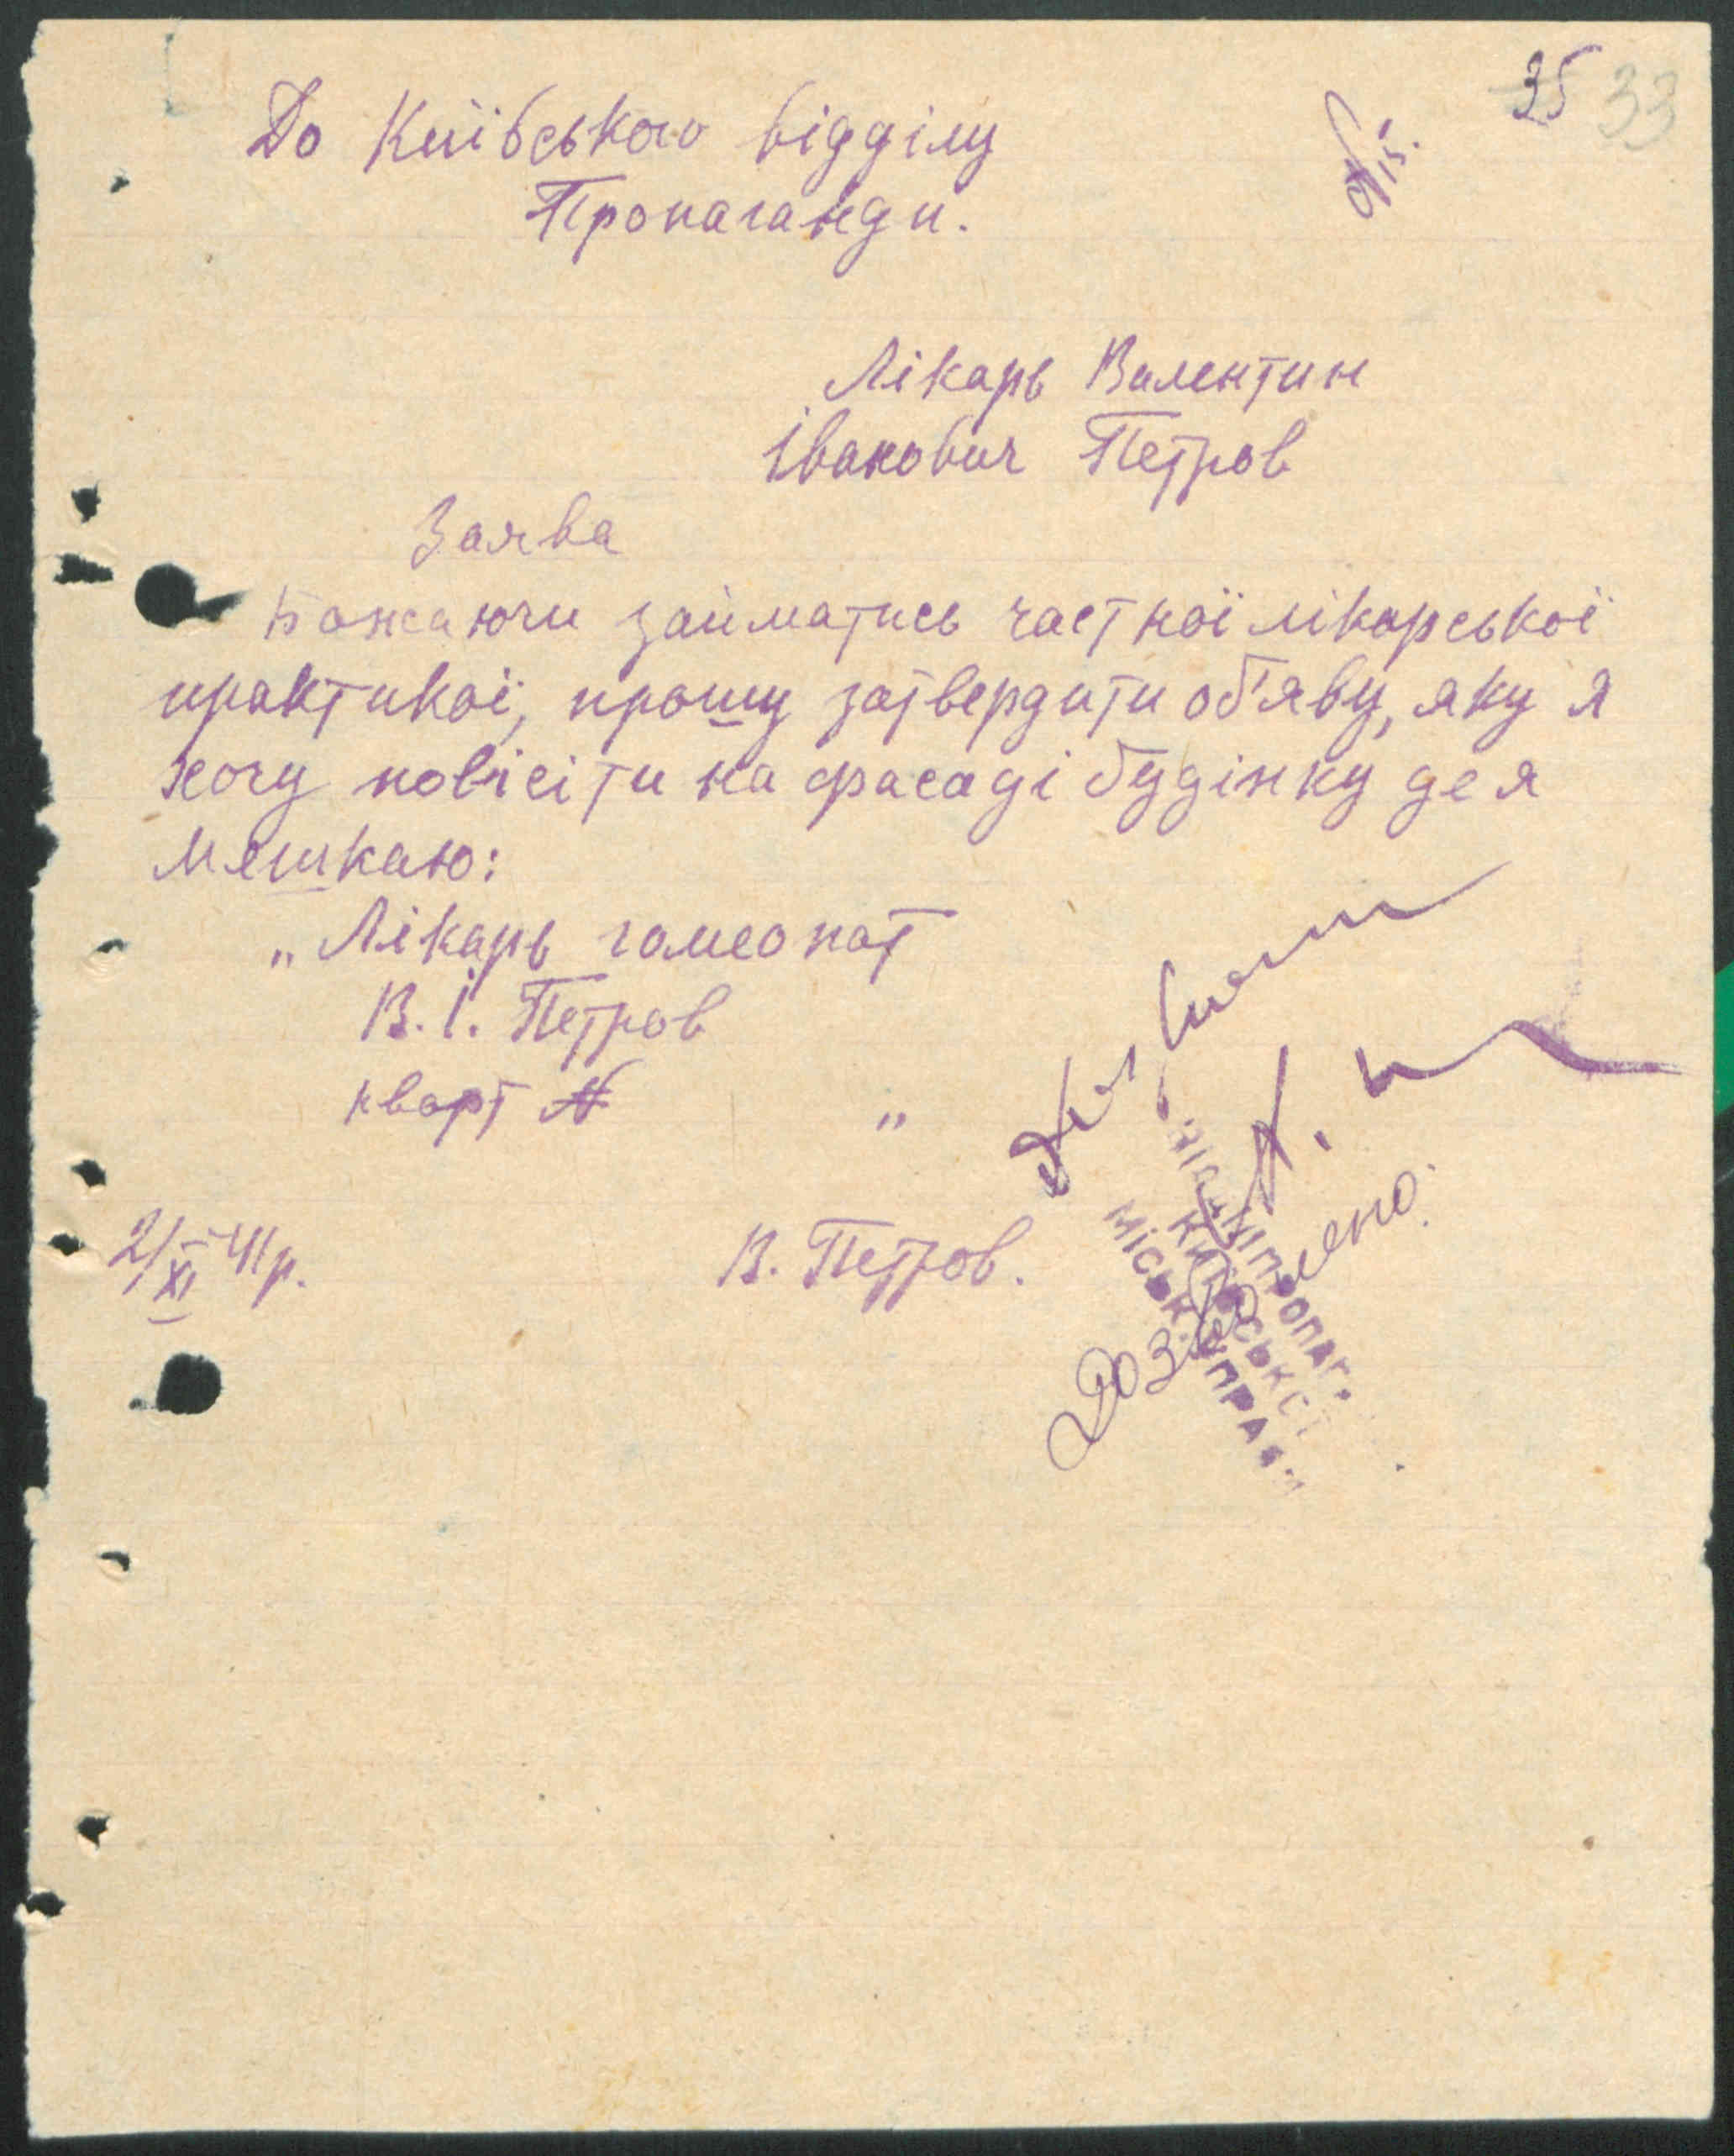 35 33
До Київського відділу
Пропаганди.
Лікарь Валентин
Іванович Петров
Заява
Бажаючи займатись частної лікарської
практикої, прошу затвердити об'яву, яку я
хочу повісіти на фасаді будінку де я
мешкаю:
„Лікарь гомеопат
В. І. Петров
кварт №  "
2/XI 41р.
В. Петров.
Дозволено.
ВІДДІЛ ПРОПАГ.
КИЇВСЬКОЇ
МІСЬК. УПРАВИ